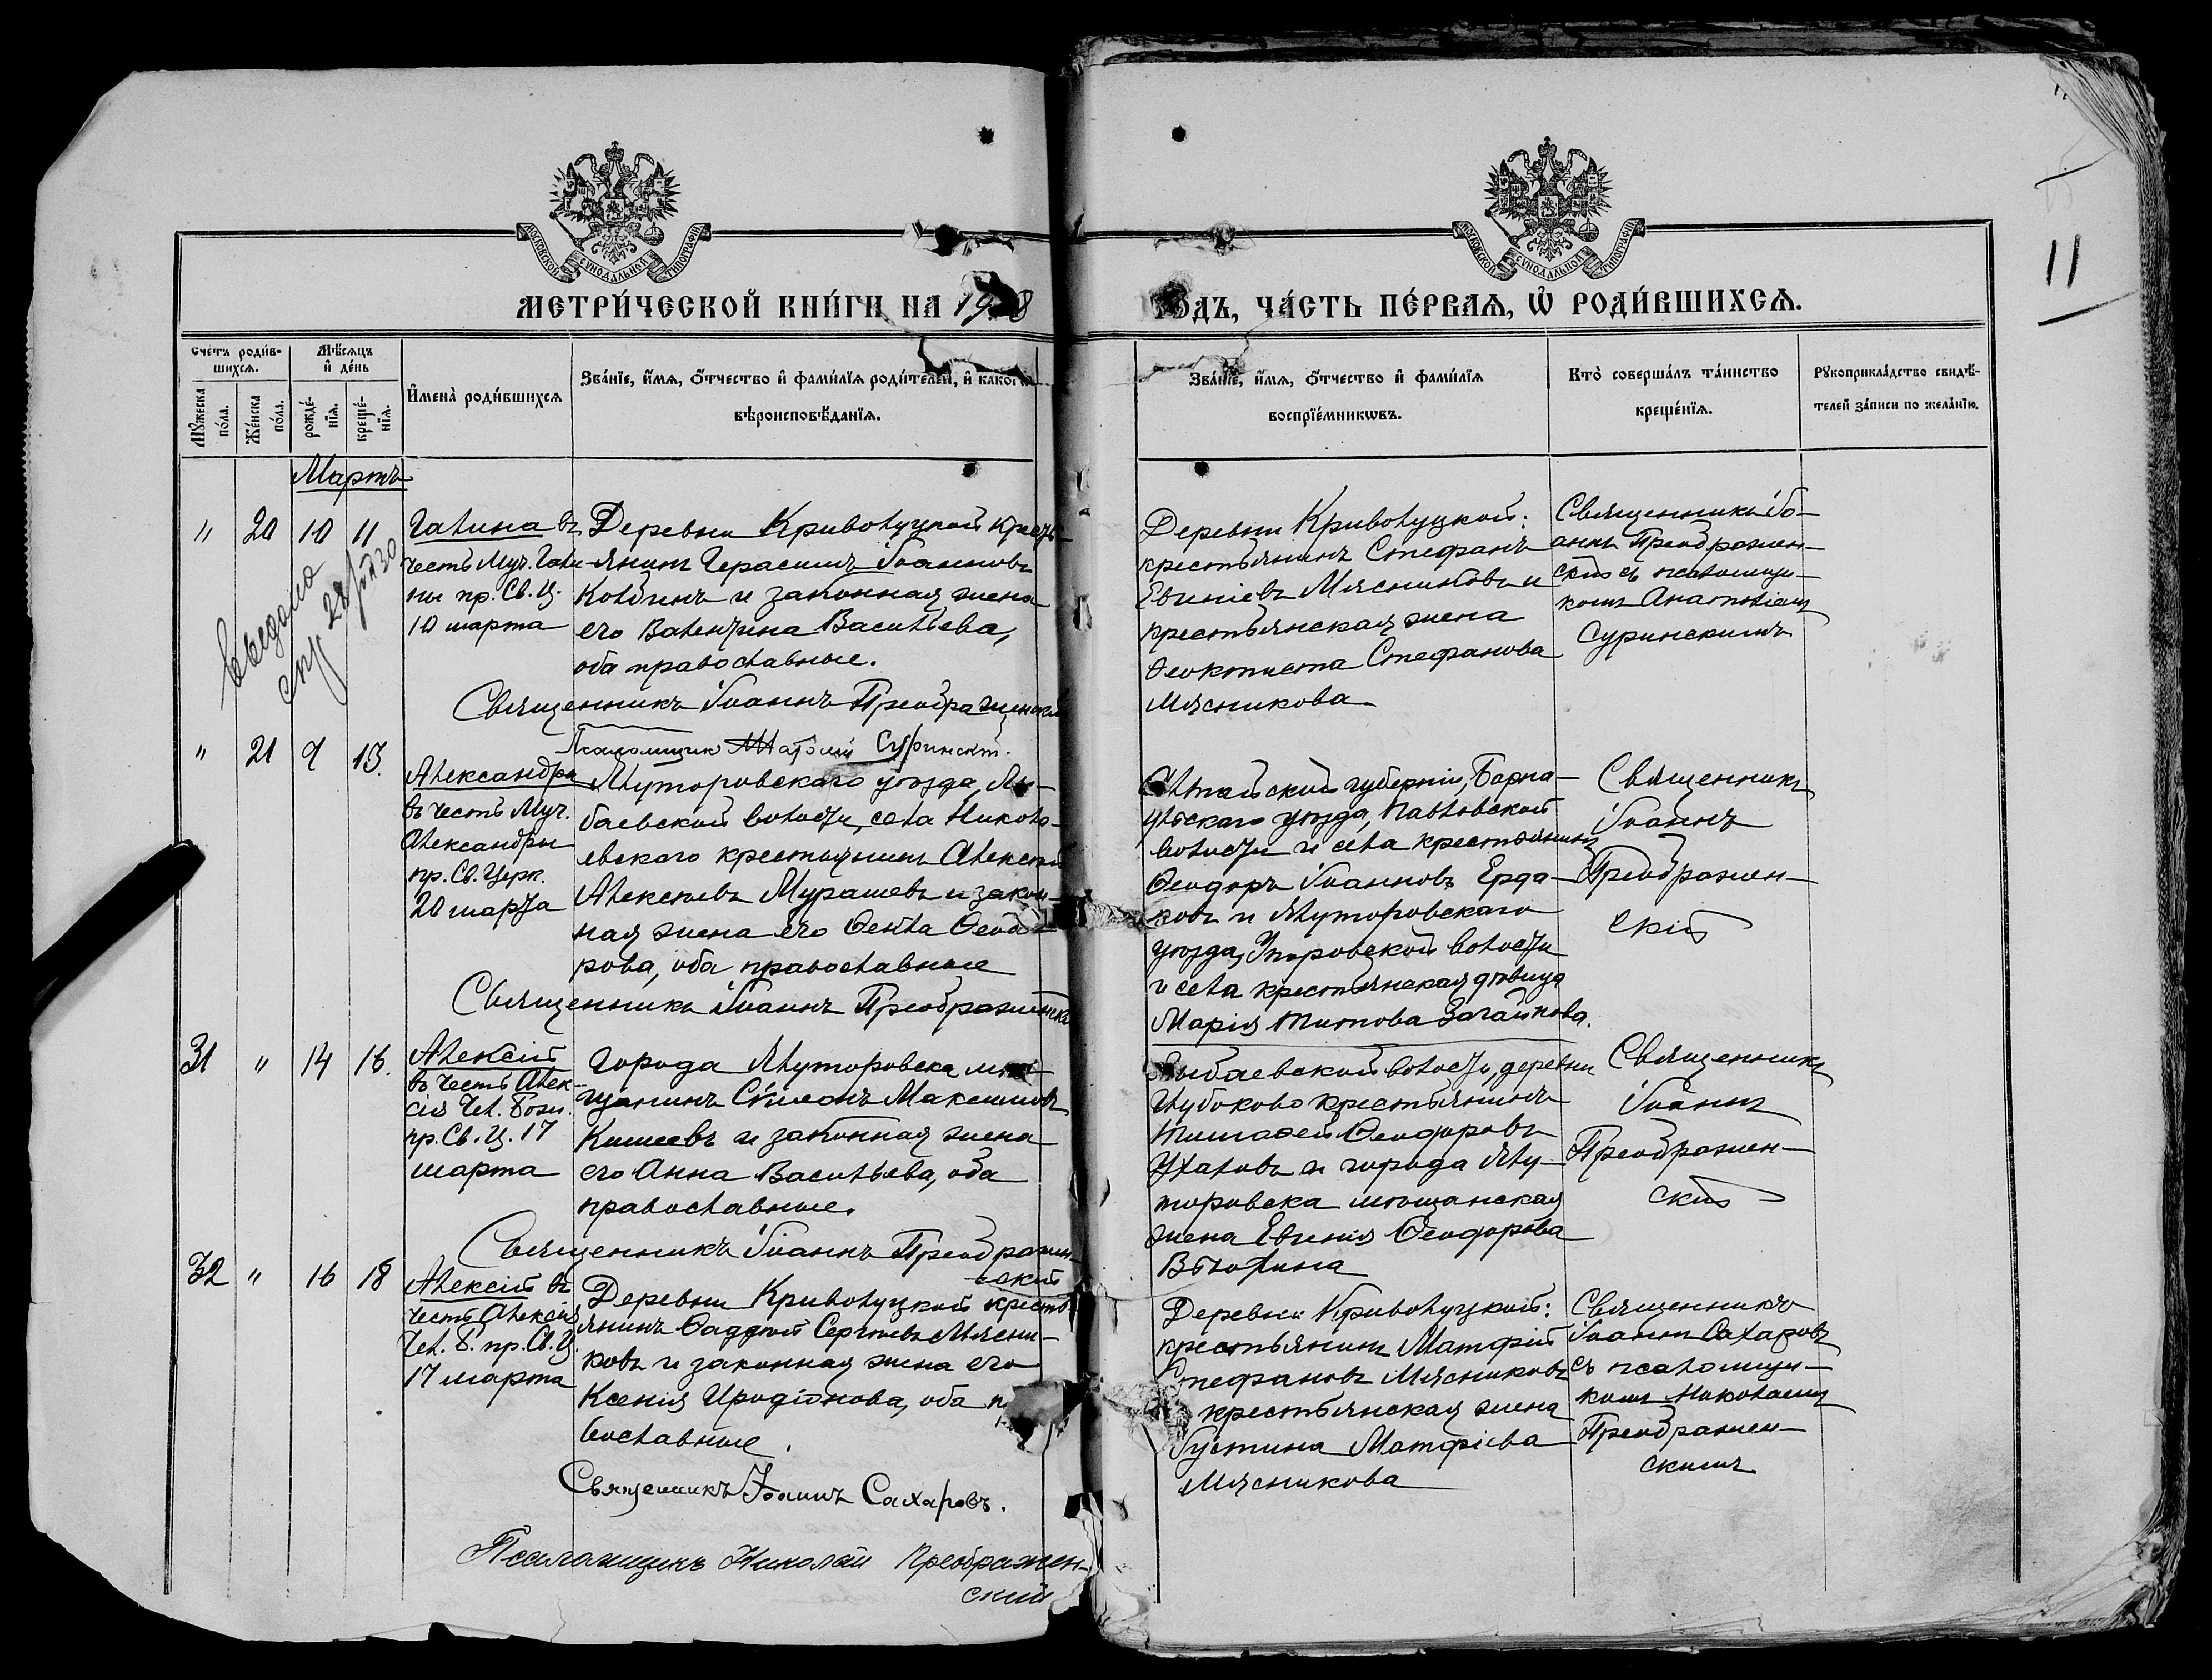 11
МОСКОВСКОЙ СУНОДАЛЬНОЙ ТИПОГРАФІИ
МОСКОВСКОЙ СУНОДАЛЬНОЙ ТИПОГРАФІИ
МЕТРИ́ЧЕСКОЙ КНИ́ГИ НА 19 8
ОДЪ, ЧА́СТЬ ПЕ́РВАЯ, Ѡ РОДИ́ВШИХСЯ.
Счетъ роди́в-
шихся.
Мѣ́сяцъ
и де́нь
Мꙋжеска
по́ла.
Же́нска
по́ла.
рожде́-
нїя.
креще́-
нїя.
И́мена̀ роди́вшихся
Зва́нїе, и́мя, о́тчество и фами́лїя роди́телей, и како́гѡ
вѣроисповѣ́данїя.
Зва́нїе, и́мя, о́тчество и фами́лїя
воспрїе́мникѡвъ.
Кто̀ соверша́лъ та́инство
креще́нїя.
Рꙋкоприкла́дство свидѣ́-
телей за́писи по жела́нїю.
Мартъ
" 20 10 11
Галина въ
честь Муч. Гали-
ны пр. Св. Ц.
10 марта
Деревни Криволуцкой кресть-
янинъ Герасимъ Іоанновъ
Колбинъ и законная жена
его Валентина Васильева,
оба православные.
Священникъ Іоаннъ Преображенскій
Псаломщик Суринскій.
Деревни Криволуцкой:
крестьянинъ Стефанъ
Евгніевъ Мясниковъ и
крестьянская жена
Ѳеоктиста Стефанова
Мясникова
Священникъ Іо-
аннъ Преображен-
скій съ псаломщи-
комъ Анатоліемъ
Суринскимъ
" 21 9 13.
Александра
въ честь Муч.
Александры
пр. Св. Церк.
20 марта
Ялуторовскаго уѣзда, Лы-
баевской волости, села Никола-
евскаго крестьянинъ Алексѣй
Алексѣевъ Мурашевъ и закон-
ная жена его Ѳекла Ѳеодо-
рова, оба православные
Священникъ Іоаннъ Преображенскій
Алтайской губерніи, Барна-
ульскаго уѣзда, Павловской
волости и села крестьянинъ
Ѳеодоръ Іоанновъ Ерда-
ковъ и Ялуторовскаго
уѣзда, Упоровской волости
и села крестьянская дѣвица
Марія Титова Загайнова.
Священникъ
Іоаннъ
Преображен-
скій
31 " 14 16.
Алексій
въ честь Алек-
сія Чел. Божі.
пр. Св. Ц. 17
марта
Города Ялуторовска мѣ-
щанинъ Сѵмеонъ Максимовъ
Кишеевъ и законная жена
его Анна Васильева, оба
православные.
Священникъ Іоаннъ Преображен-
скій
Лыбаевской волости, деревни
Глубоково крестьянинъ
Тимоѳей Ѳеодоровъ
Ухаловъ и города Ялу-
торовска мѣщанская
жена Евгенія Ѳеодорова
Священникъ
Іоаннъ
Преображен-
скій
32 " 16 18
Алексій въ
честь Алексія
Чел. Б. пр. Св. Ц.
17 марта
Деревни Криволуцкой кресть-
янинъ Ѳаддей Сергѣевъ Мясни-
ковъ и законная жена его
Ксенія Иродіонова, оба пра-
вославные.
Священникъ Іоаннъ Сахаровъ.
Псаломщикъ Николай Преображен-
скій
Деревни Криволуцкой:
крестьянинъ Матѳій
Стефановъ Мясниковъ
крестьянская жена
Іустина Матѳіева
Мясникова
Священникъ
Іоаннъ Сахаровъ
съ псаломщи-
комъ Николаемъ
Преображен-
скимъ